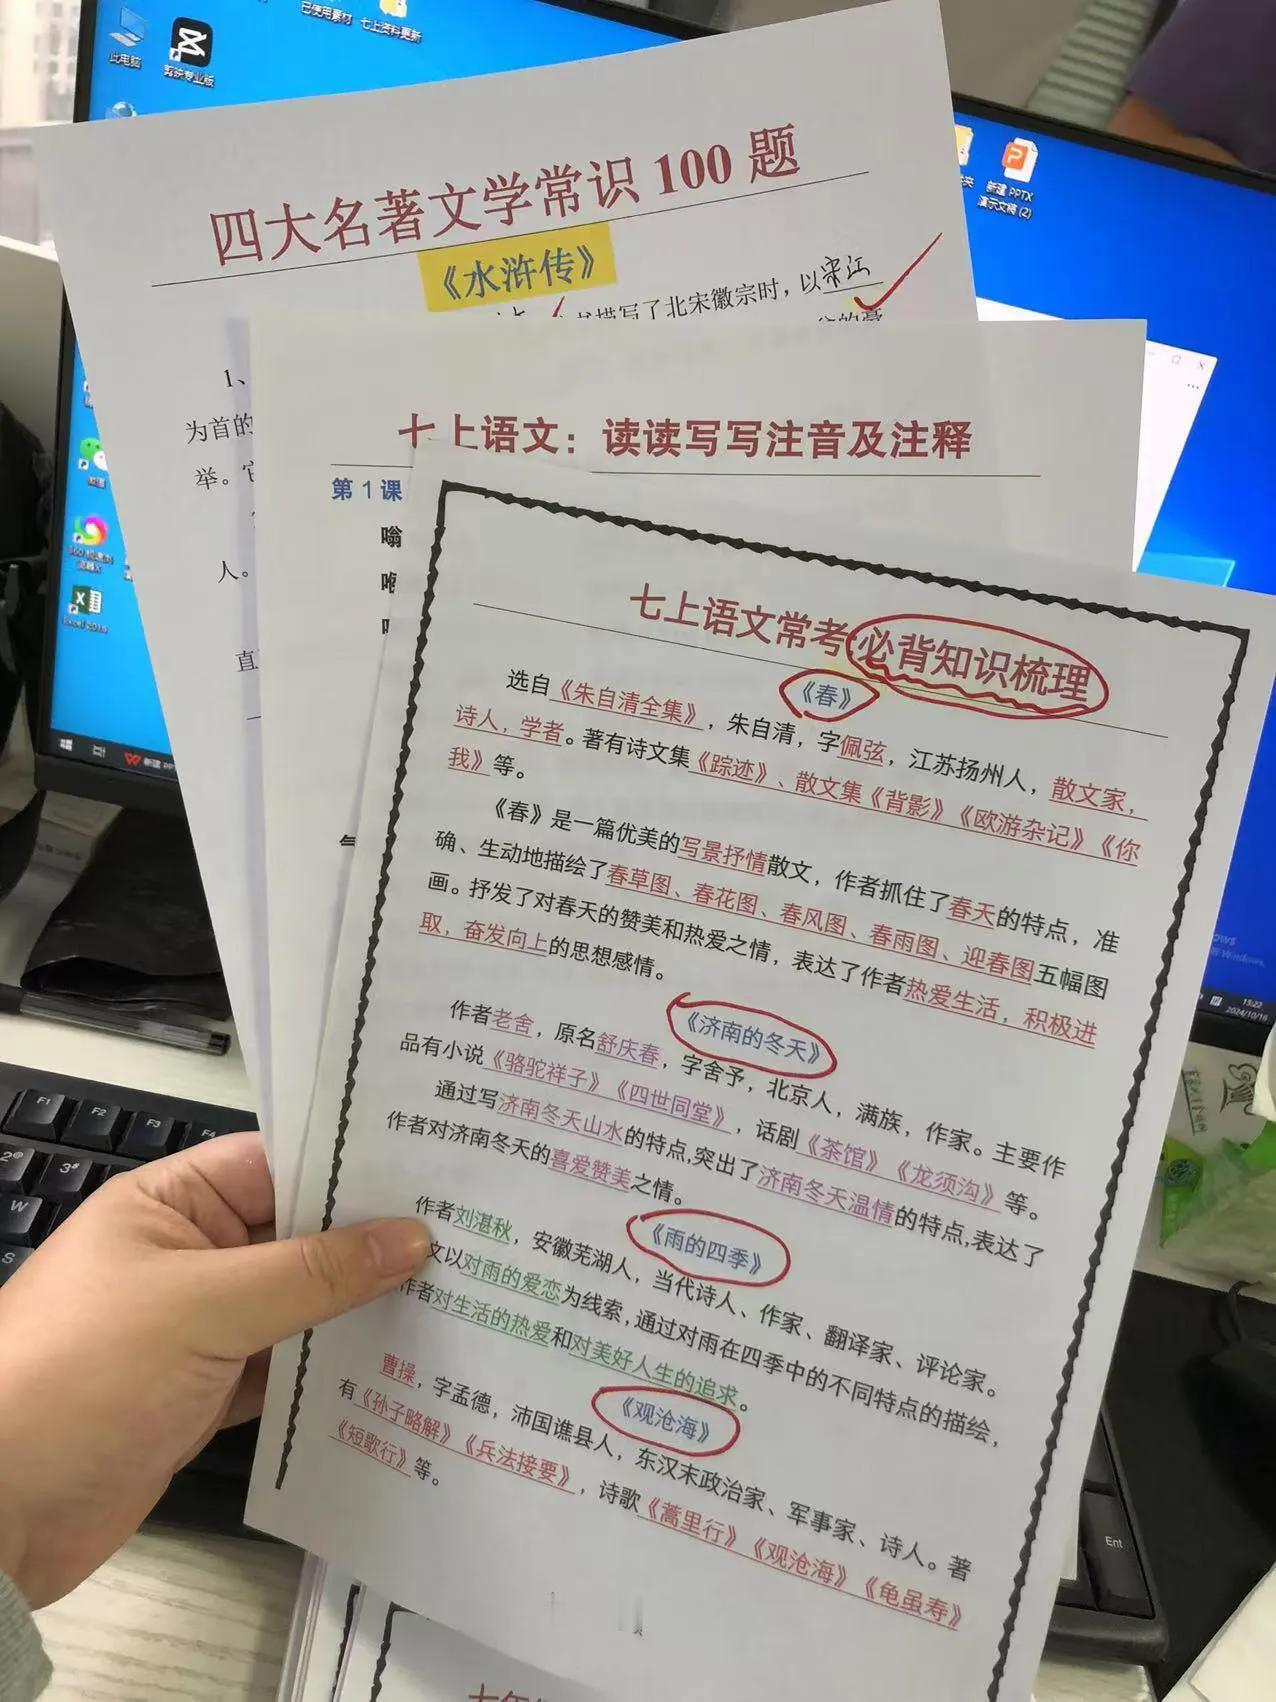 已使用素材
七上资料更新
此电脑
剪映专业版
新建 PPTX
演示文稿 (2)
四大名著文学常识 100 题
《水浒传》
书描写了北宋徽宗时，以宋江
1、
为首的
举。
人。
直
七上语文：读读写写注音及注释
第 1 课
嗡
七上语文常考必背知识梳理
《春》
选自《朱自清全集》，朱自清，字佩弦，江苏扬州人，散文家，
诗人，学者。著有诗文集《踪迹》、散文集《背影》《欧游杂记》《你
我》等。
《春》是一篇优美的写景抒情散文，作者抓住了春天的特点，准
确、生动地描绘了春草图、春花图、春风图、春雨图、迎春图五幅图
画。抒发了对春天的赞美和热爱之情，表达了作者热爱生活，积极进
取，奋发向上的思想感情。
《济南的冬天》
作者老舍，原名舒庆春，字舍予，北京人，满族，作家。主要作
品有小说《骆驼祥子》《四世同堂》，话剧《茶馆》《龙须沟》等。
通过写济南冬天山水的特点,突出了济南冬天温情的特点,表达了
作者对济南冬天的喜爱赞美之情。
《雨的四季》
作者刘湛秋，安徽芜湖人，当代诗人、作家、翻译家、评论家。
文以对雨的爱恋为线索,通过对雨在四季中的不同特点的描绘，
作者对生活的热爱和对美好人生的追求。
《观沧海》
曹操，字孟德，沛国谯县人，东汉末政治家、军事家、诗人。著
有《孙子略解》《兵法接要》，诗歌《蒿里行》《观沧海》《龟虽寿》
《短歌行》等。
15:22
2024/10/16
F1
F2
F3
F4
2
3#
W
Ent